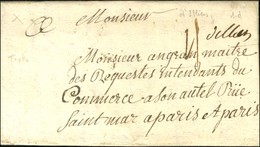 Monsieur
d'Illiers
dillier
Monsieur angran maitre
des Requestes intendants du
Commerce a son autel Rüe
Saint mar a paris A paris